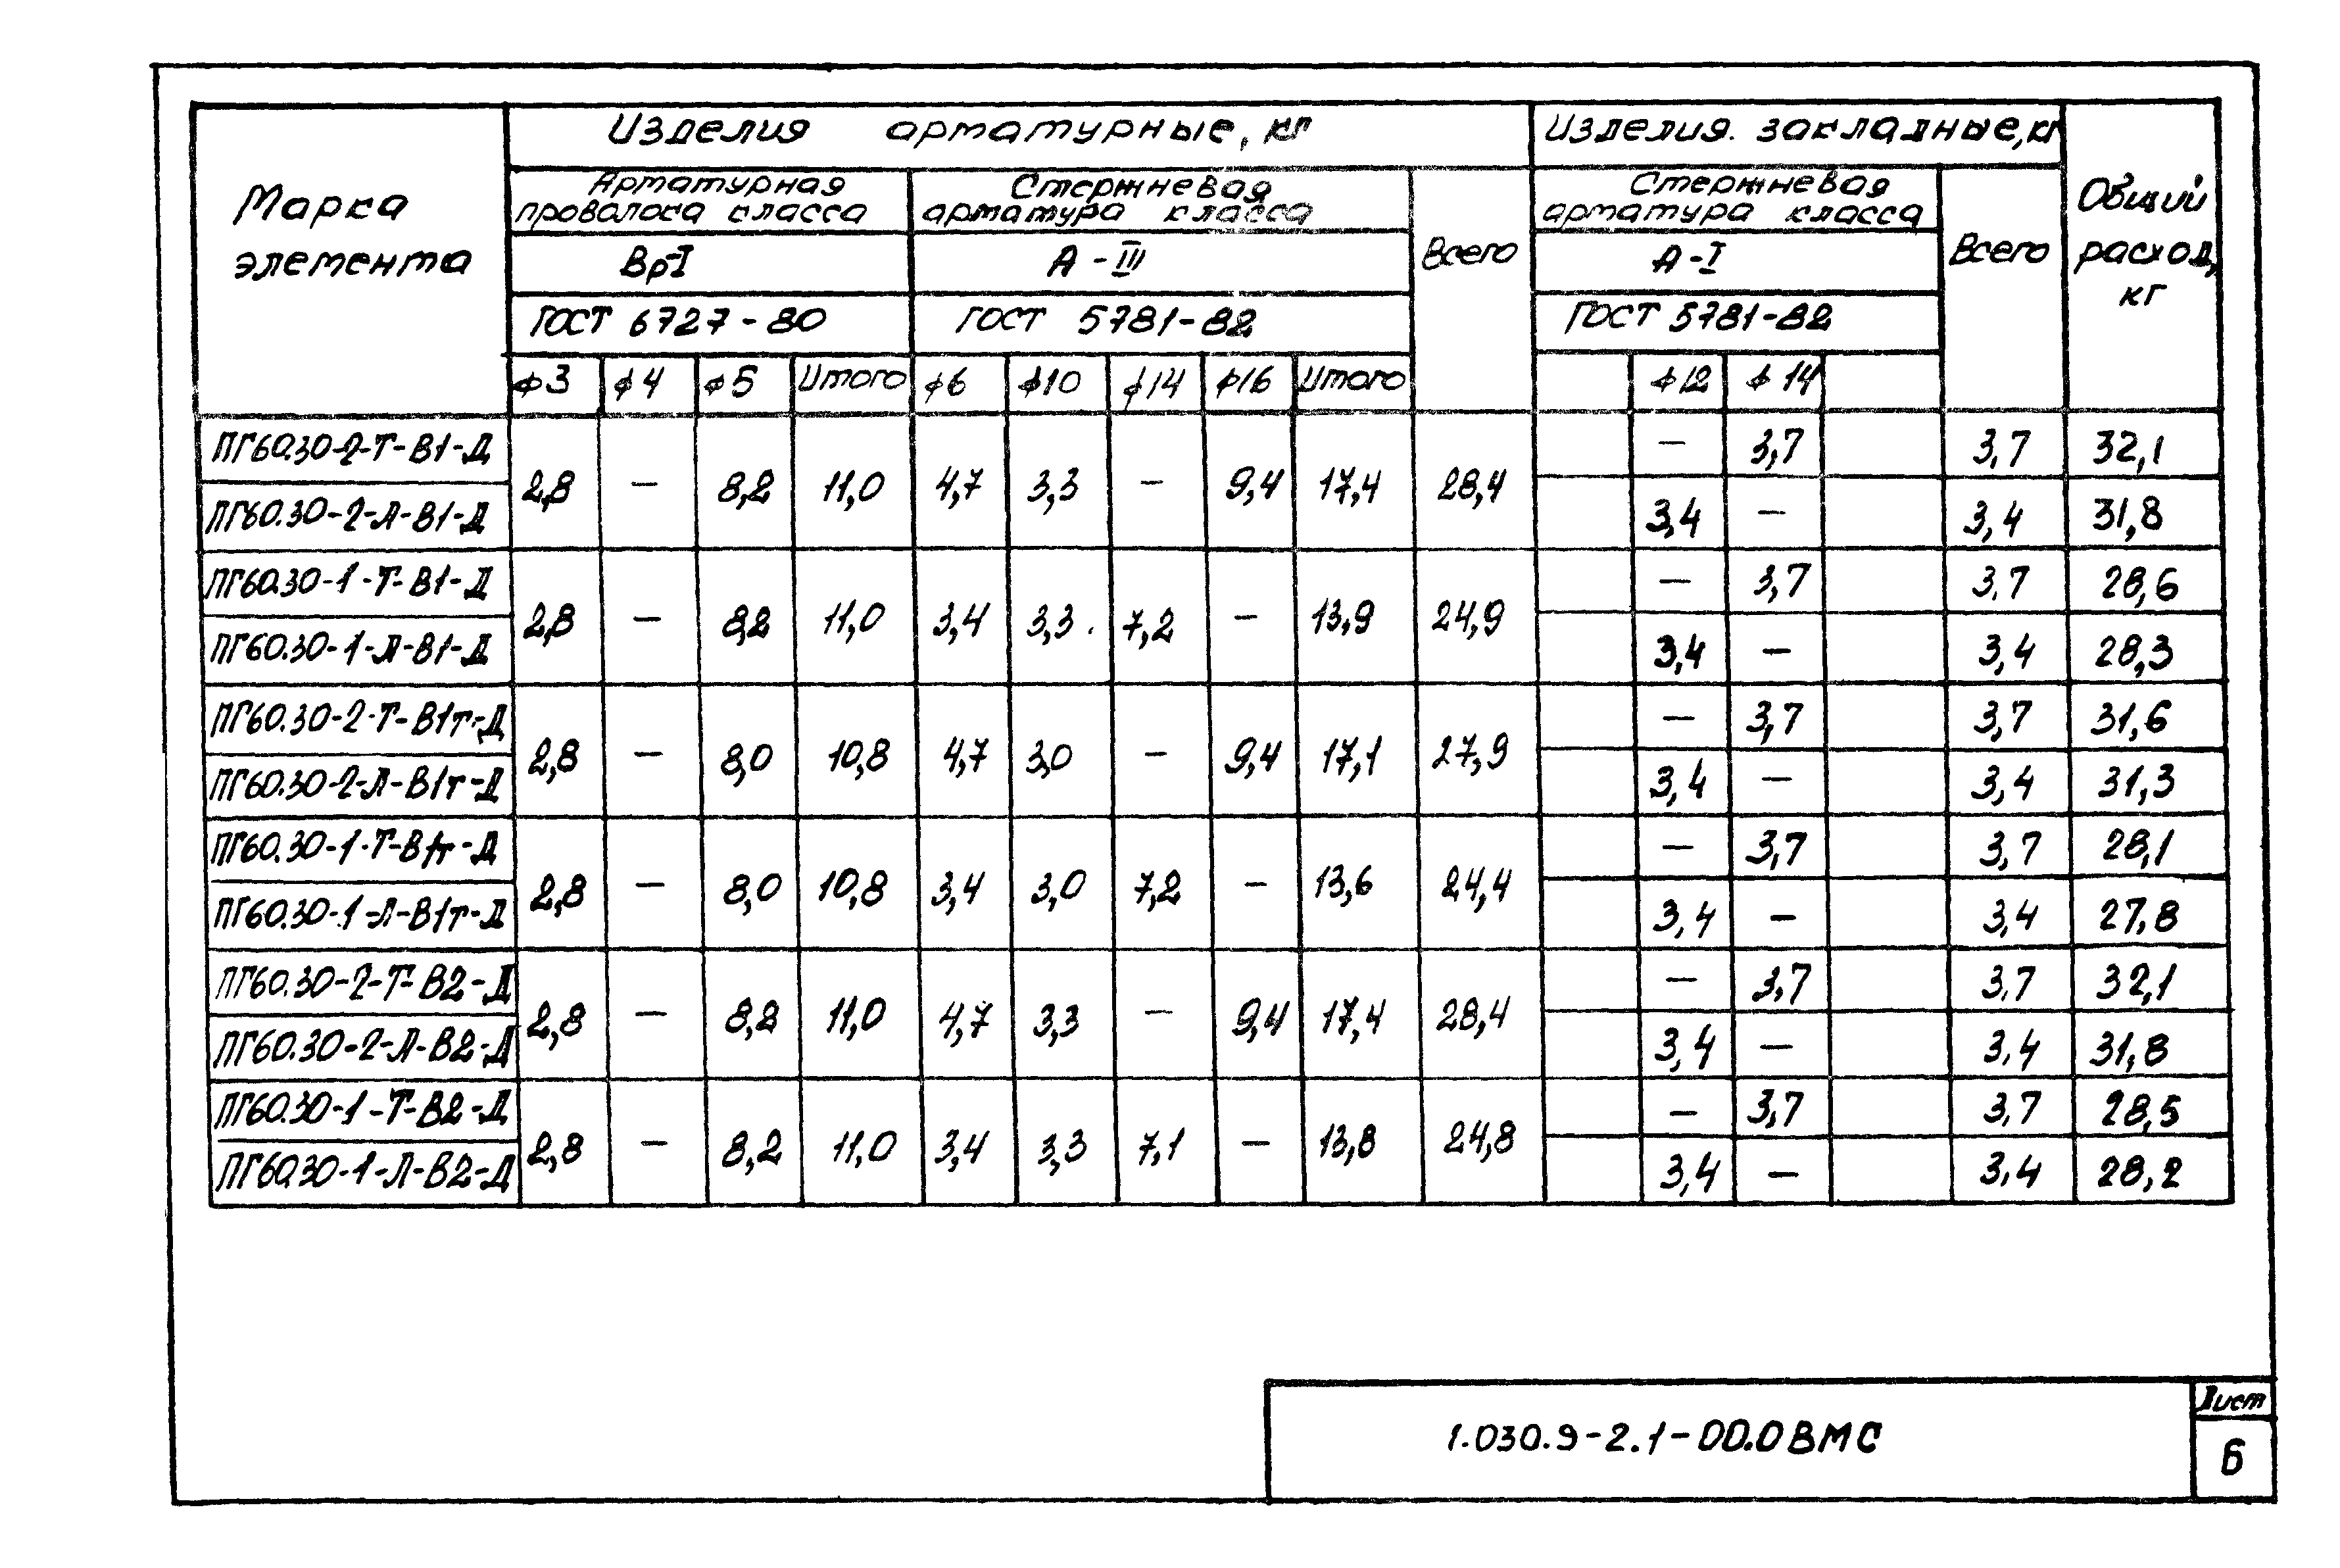 Изделия арматурные, кг Изделия закладные, кг
Марка элемента Арматурная проволока класса Стержневая арматура класса Всего Стержневая арматура класса Всего Общий расход, кг
Вр-I А-III А-I
ГОСТ 6727-80 ГОСТ 5781-82 ГОСТ 5781-82
ф3 ф4 ф5 Итого ф6 ф10 ф14 ф16 Итого ф12 ф14
ПГ60.30-2-Т-В1-Д — 3,7 3,7 32,1
2,8 — 8,2 11,0 4,7 3,3 — 9,4 17,4 28,4
ПГ60.30-2-Л-В1-Д 3,4 — 3,4 31,8
ПГ60.30-1-Т-В1-Д — 3,7 3,7 28,6
2,8 — 8,2 11,0 3,4 3,3 7,2 — 13,9 24,9
ПГ60.30-1-Л-В1-Д 3,4 — 3,4 28,3
ПГ60.30-2-Т-В1т-Д — 3,7 3,7 31,6
2,8 — 8,0 10,8 4,7 3,0 — 9,4 17,1 27,9
ПГ60.30-2-Л-В1т-Д 3,4 — 3,4 31,3
ПГ60.30-1-Т-В1т-Д — 3,7 3,7 28,1
2,8 — 8,0 10,8 3,4 3,0 7,2 — 13,6 24,4
ПГ60.30-1-Л-В1т-Д 3,4 — 3,4 27,8
ПГ60.30-2-Т-В2-Д — 3,7 3,7 32,1
2,8 — 8,2 11,0 4,7 3,3 — 9,4 17,4 28,4
ПГ60.30-2-Л-В2-Д 3,4 — 3,4 31,8
ПГ60.30-1-Т-В2-Д — 3,7 3,7 28,5
2,8 — 8,2 11,0 3,4 3,3 7,1 — 13,8 24,8
ПГ60.30-1-Л-В2-Д 3,4 — 3,4 28,2
1.030.9-2.1-00.0ВМС
Лист
6